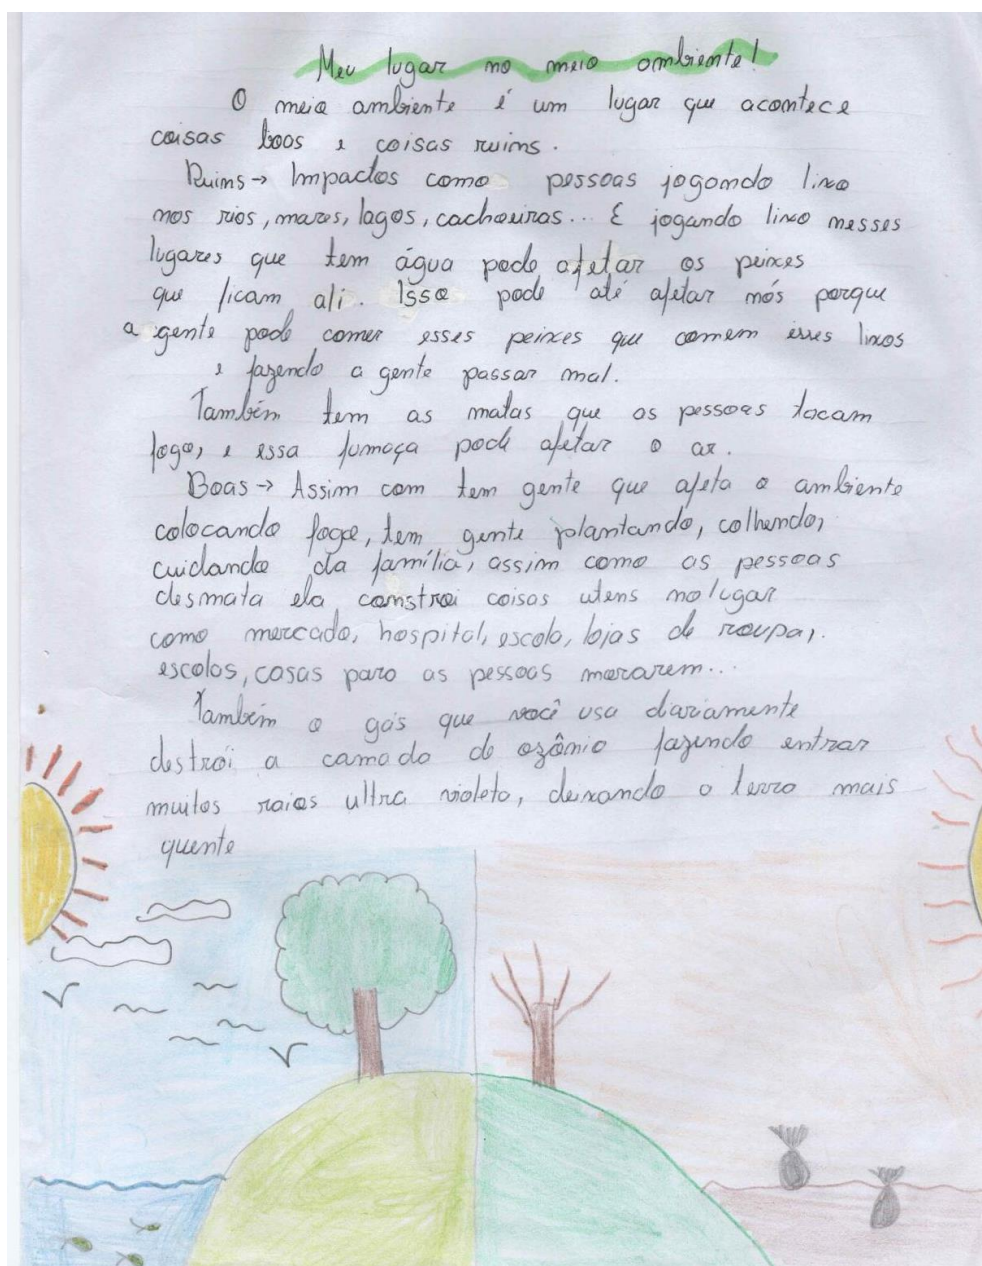 Meu lugar no meio ambiente!
O meio ambiente é um lugar que acontece
coisas boas e coisas ruins.
Ruins → Impactos como pessoas jogando lixo
nos rios, mares, lagos, cachoeiras... E jogando lixo nesses
lugares que tem água pode afetar os peixes
que ficam ali. Isso pode até afetar nós porque
a gente pode comer esses peixes que comem esses lixos
e fazendo a gente passar mal.
Também tem as matas que as pessoas tocam
fogo, e essa fumaça pode afetar o ar.
Boas → Assim com tem gente que afeta o ambiente
colocando fogo, tem gente plantando, colhendo,
cuidando da família, assim como as pessoas
desmata ela constroi coisas utens no lugar
como mercado, hospital, escola, lojas de roupa,.
escolas, casas para as pessoas morarem...
Também o gás que você usa dariamente
destrói a camada de ozônio fazendo entrar
muitos raios ultra violeta, deixando a terra mais
quente